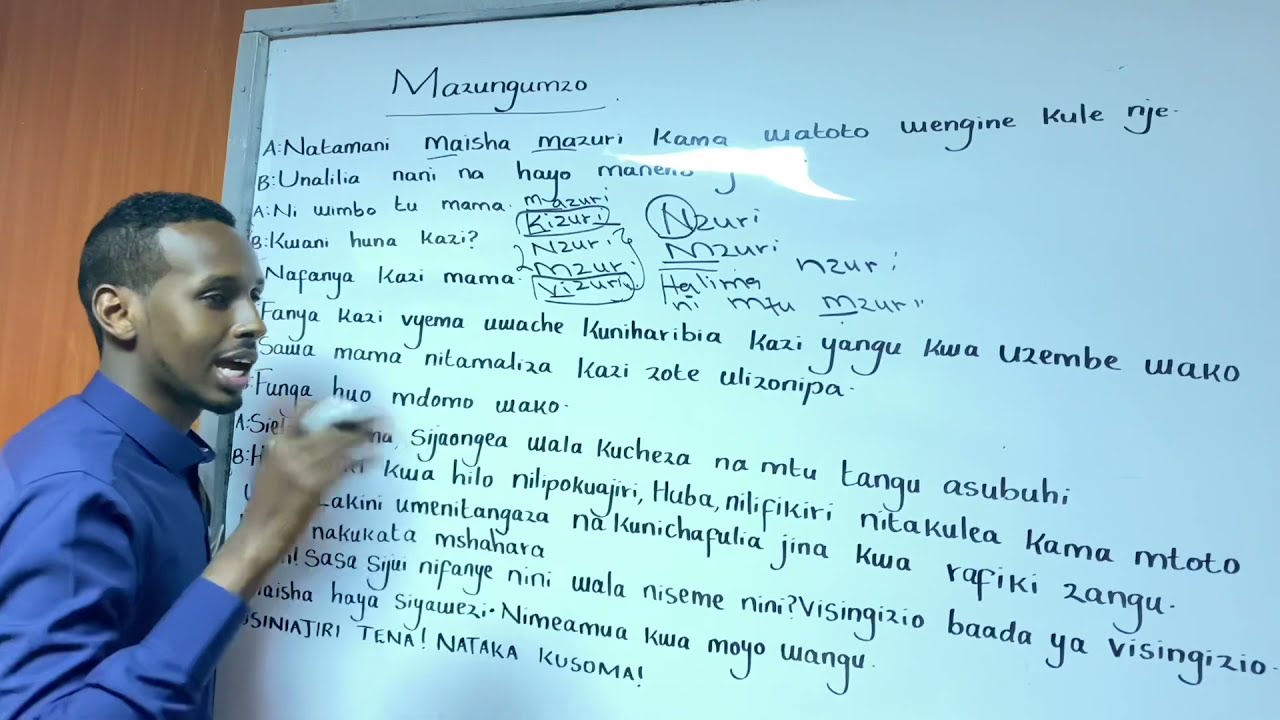 Mazungumzo
A: Natamani maisha mazuri kama watoto wengine kule nje.
B: Unalilia nani na hayo maneno
A: Ni wimbo tu mama. mazuri
Kizuri Nzuri
B: Kwani huna kazi? Nzuri Mzuri
Nafanya kazi mama. Mzuri nzuri
Vizuri Halima
ni mtu mzuri
Fanya kazi vyema uwache kuniharibia kazi yangu kwa uzembe wako
Sawa mama nitamaliza kazi zote ulizonipa.
Funga huo mdomo wako.
A: sijaongea wala kucheza na mtu tangu asubuhi
B: kwa hilo nilipokuajiri, Huba, nilifikiri nitakulea kama mtoto
Lakini umenitangaza na kunichafulia jina kwa rafiki zangu.
nakukata mshahara
Sasa sijui nifanye nini wala niseme nini? Visingizio baada ya visingizio.
haya siyawezi. Nimeamua kwa moyo wangu.
TENA! NATAKA KUSOMA!